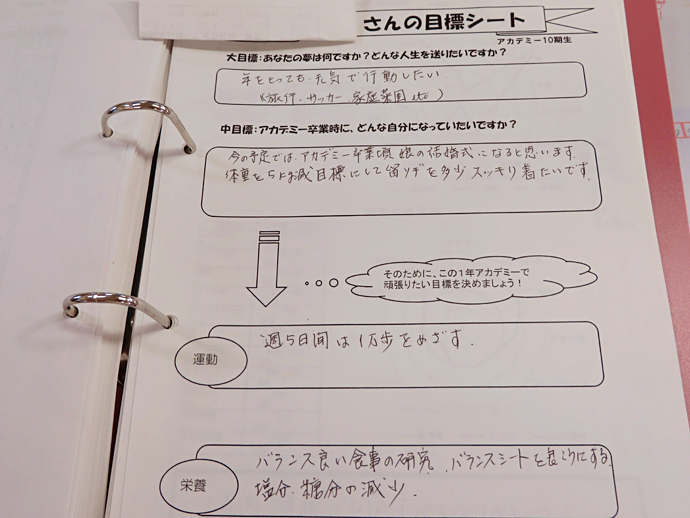 さんの目標シート
アカデミー10期生
大目標:あなたの夢は何ですか?どんな人生を送りたいですか?
年をとっても元気で行動したい
(旅行、サッカー、家庭菜園 etc)
中目標:アカデミー卒業時に、どんな自分になっていたいですか?
今の予定では、アカデミー卒業頃 娘の結婚式になると思います
体重を5㎏減目標にして留ソデを多少スッキリ着たいです.
そのために、この1年アカデミーで
頑張りたい目標を決めましょう!
運動
週5日間は1万歩をめざす.
栄養
バランス良い食事の研究、バランスシートを
塩分、糖分の減少.